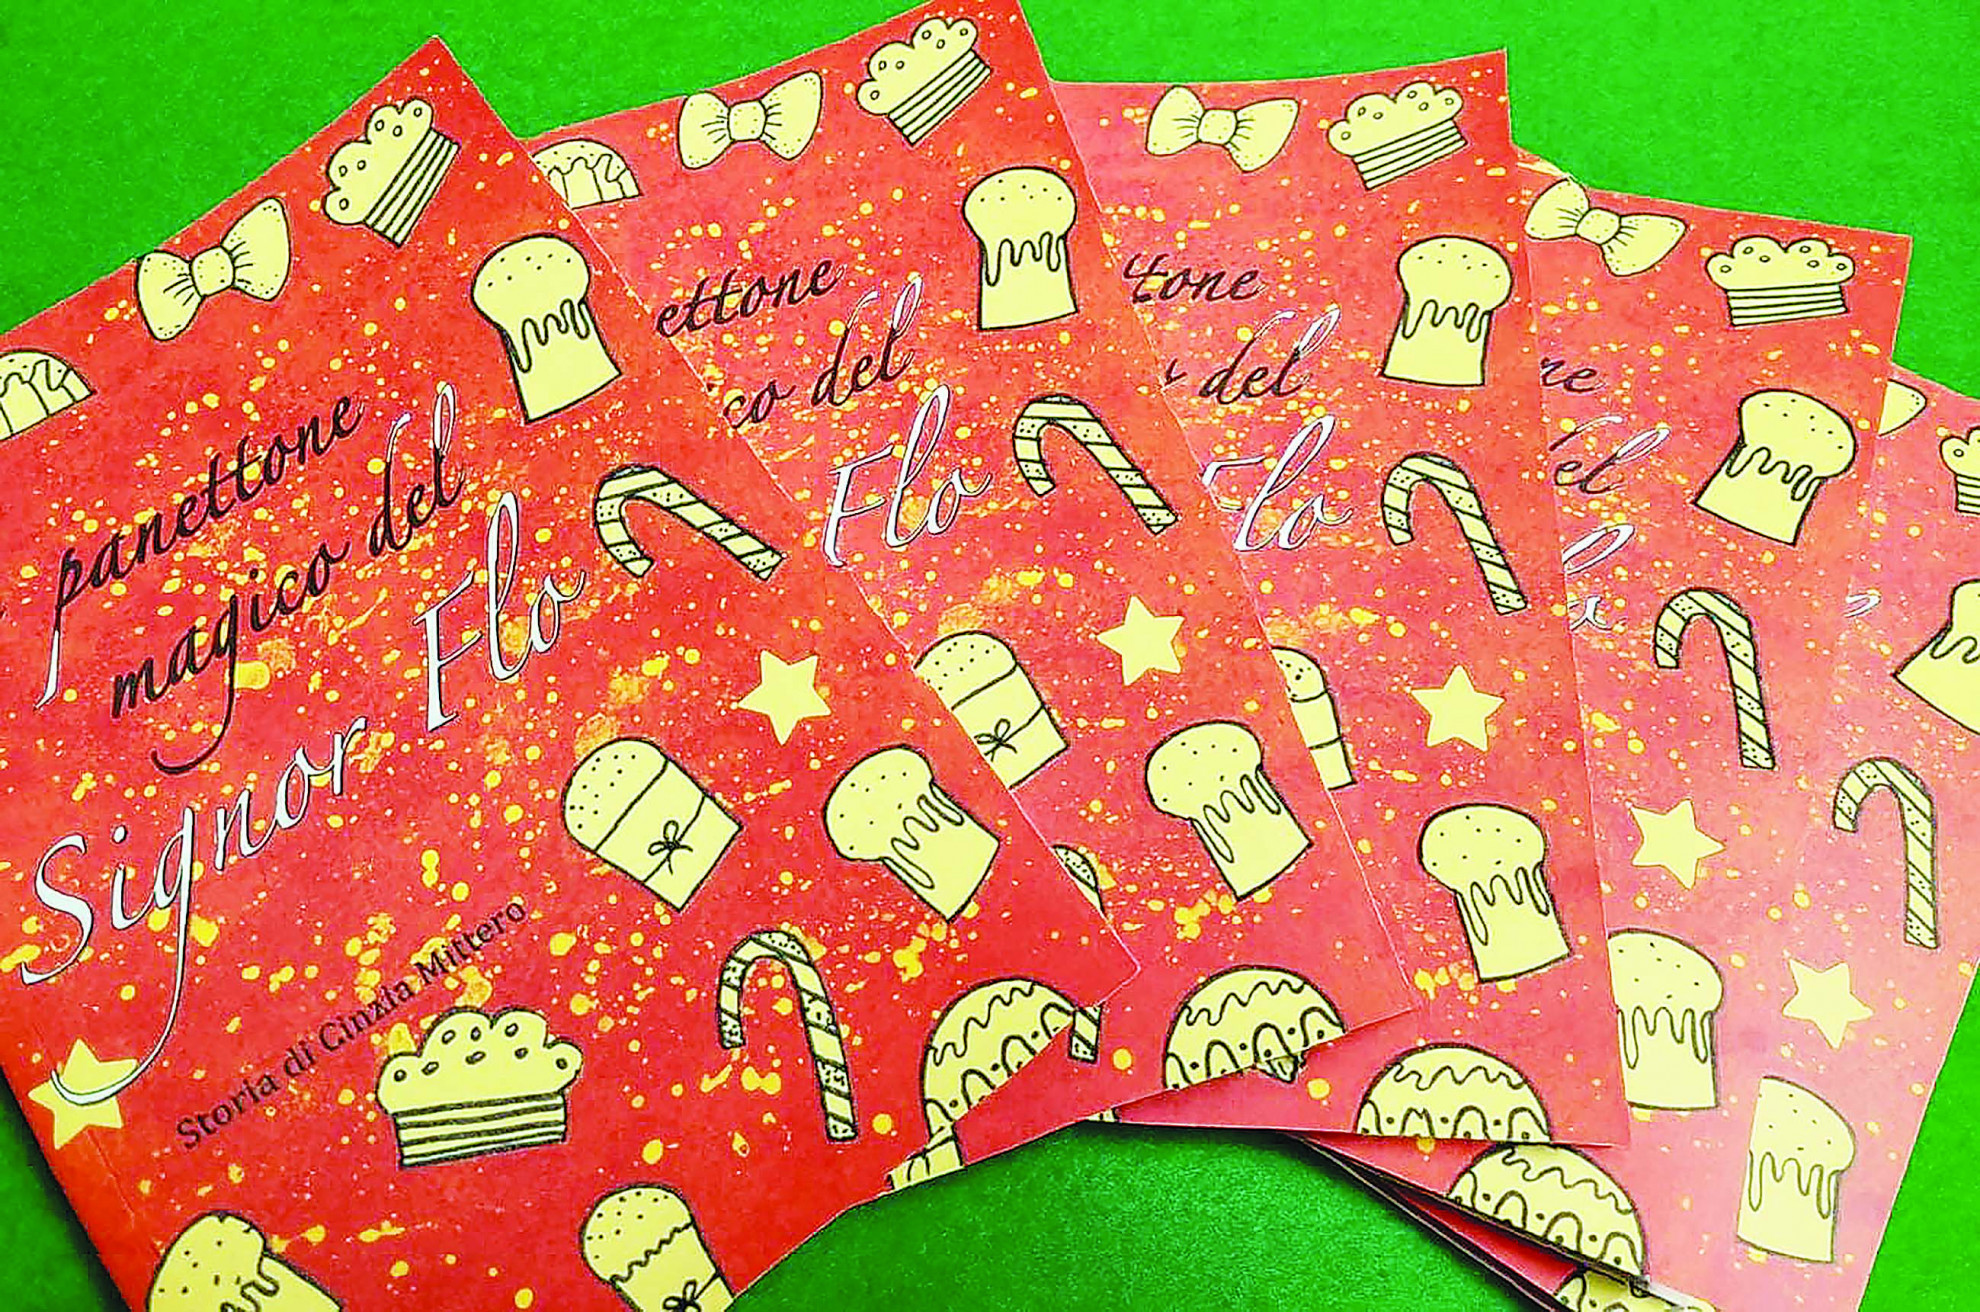 panettone
magico del
Signor Flo
Storia di Cinzia Mittero
ettone
co del
Flo
tone
del
Flo
ne
del